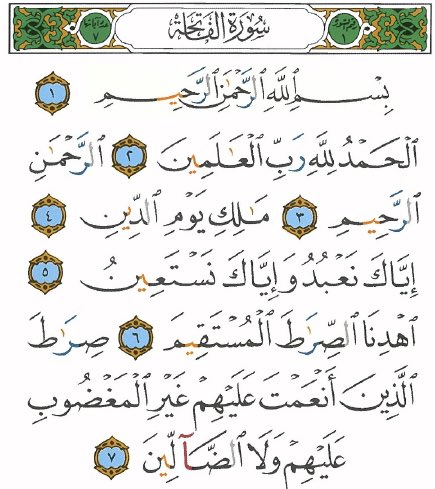 سُورَةُ الْفَاتِحَة
بِسْمِ ٱللَّهِ ٱلرَّحْمَٰنِ ٱلرَّحِيمِ ١
ٱلْحَمْدُ لِلَّهِ رَبِّ ٱلْعَٰلَمِينَ ٢ ٱلرَّحْمَٰنِ
ٱلرَّحِيمِ ٣ مَٰلِكِ يَوْمِ ٱلدِّينِ ٤
إِيَّاكَ نَعْبُدُ وَإِيَّاكَ نَسْتَعِينُ ٥
ٱهْدِنَا ٱلصِّرَٰطَ ٱلْمُسْتَقِيمَ ٦ صِرَٰطَ
ٱلَّذِينَ أَنْعَمْتَ عَلَيْهِمْ غَيْرِ ٱلْمَغْضُوبِ
عَلَيْهِمْ وَلَا ٱلضَّآلِّينَ ٧